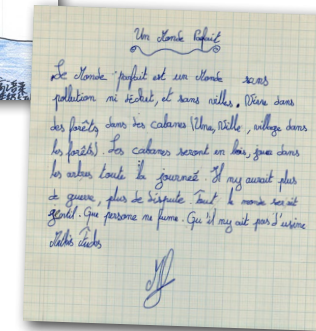 Un Monde Parfait
Le Monde parfait est un Monde sans
pollution ni déchet, et sans villes. Vivre dans
des forêts dans des cabanes (Une, Ville, village dans
les forêts). Les cabanes seront en bois, jouer dans
les arbres toute la journeé. Il ny aurait plus
de guerre, plus de dispute. Tout le monde serait
gentil. Que persone ne fume. Qu'il ny ait pas d'usine